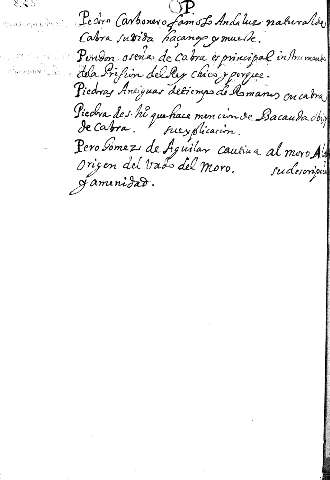 P.
Pedro Carbonero famoso Andaluz natural de
Cabra su vida haçanas y muerte.
Pendon o seña de Cabra es principal instrumento
de la Prision del Rey chico y porque.
Piedras Antiguas de tiempo de Romanos en cabra
Piedra de S. que hace mencion de Bacauda obispo
de Cabra. su explicacion.
Pero Gomez de Aguilar cautiva al moro
origen del Vado del Moro. su descripcion
y amenidad.